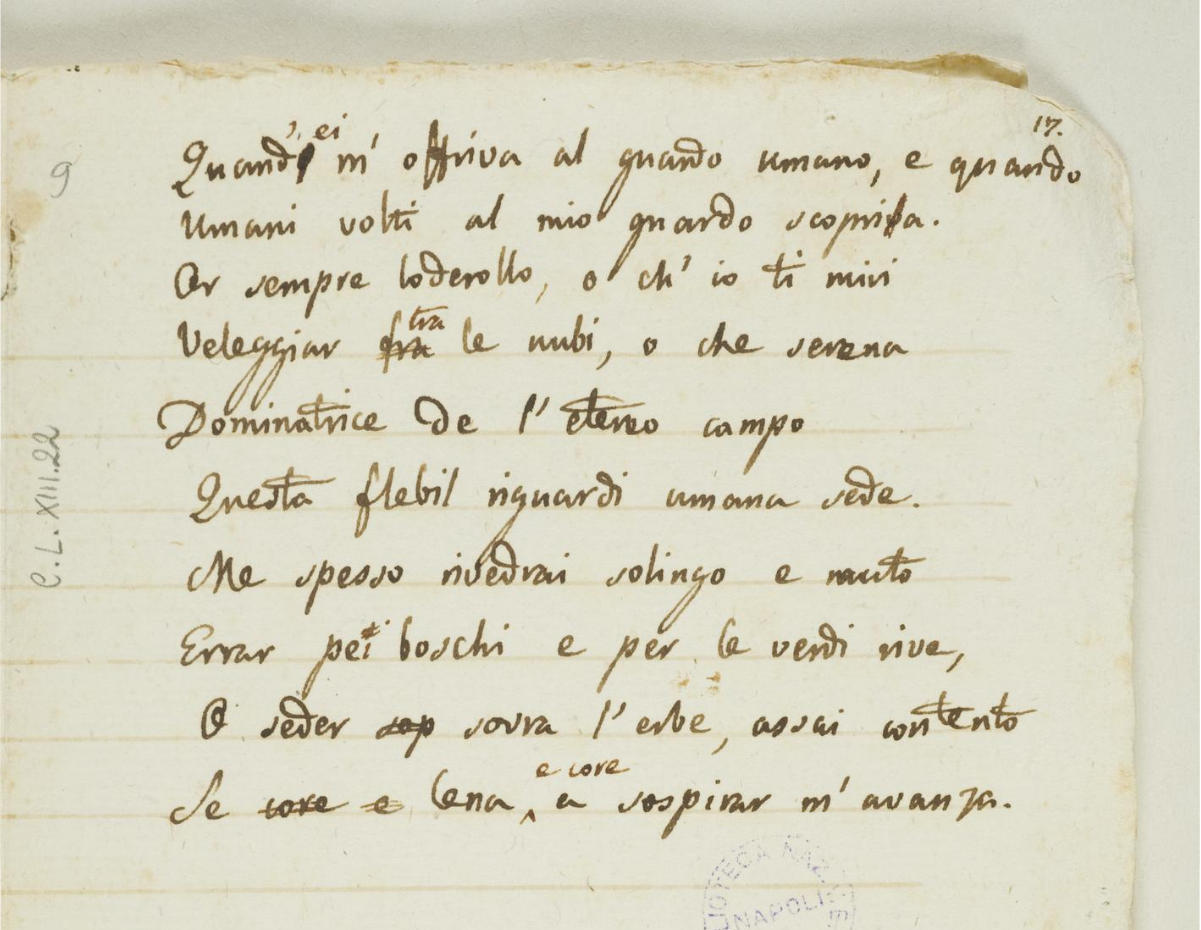 17.
Quand' ei m' offriva al guardo umano, e quando
Umani volti al mio guardo scopria.
Or sempre loderollo, o ch' io ti miri
Veleggiar fra tra le nubi, o che serena
Dominatrice de l' etereo campo
Questa flebil riguardi umana sede.
Me spesso rivedrai solingo e muto
Errar pei boschi e per le verdi rive,
O seder sop sovra l' erbe, assai contento
Se core e lena, e core a sospirar m' avanza.
9
C.L.XIII.22
NAPOLI